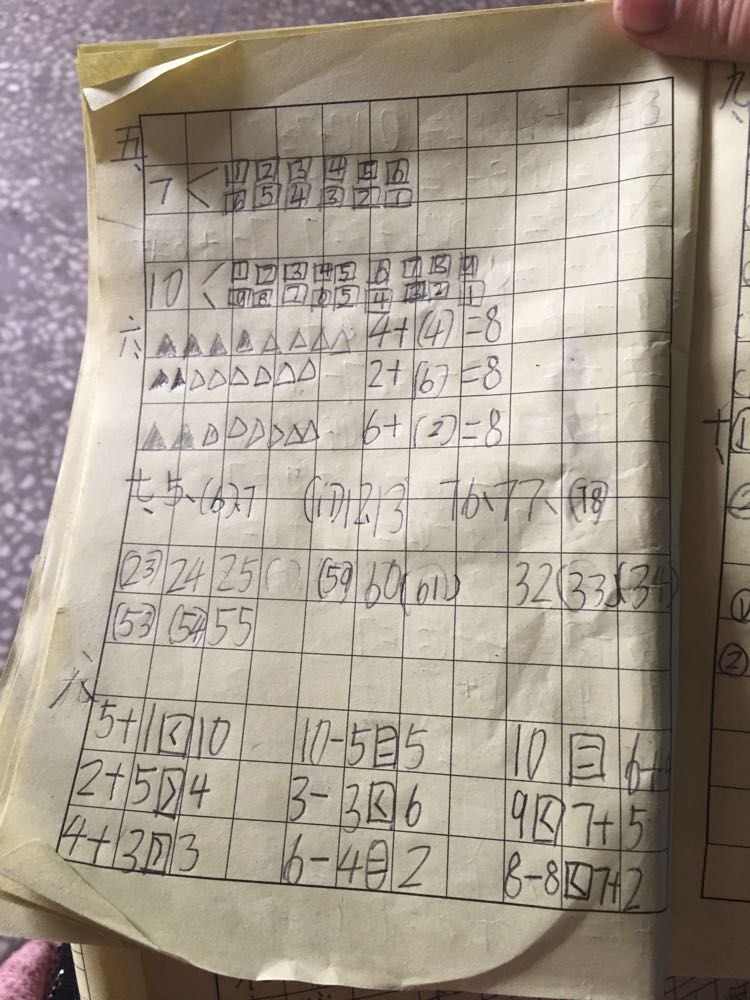 五、
7 < 1 2 3 4 5 6
6 5 4 3 2 1
10 < 1 2 3 4 5 6 7 8 9
9 8 7 6 5 4 3 2 1
六、 ▲▲▲▲△△△△ 4+(4)=8
▲▲△△△△△△ 2+(6)=8
▲▲△△△△△△ 6+(2)=8
七、5、(6)、7 (11)12、13 76、77、(78)
(23) 24 25 ( ) (59) 60 (61) 32 (33)(34)
(53) (54) 55
八、
5+1<10 10-5=5 10 = 6+
2+5>4 3-3<6 9<7+5
4+3>3 6-4=2 8-8<7+2
九、
十、
①
②